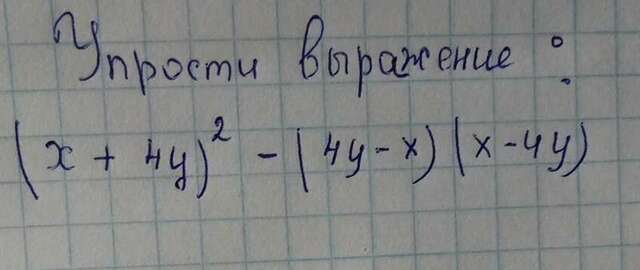 Упрости выражение :
(x + 4y)² - (4y - x)(x - 4y)